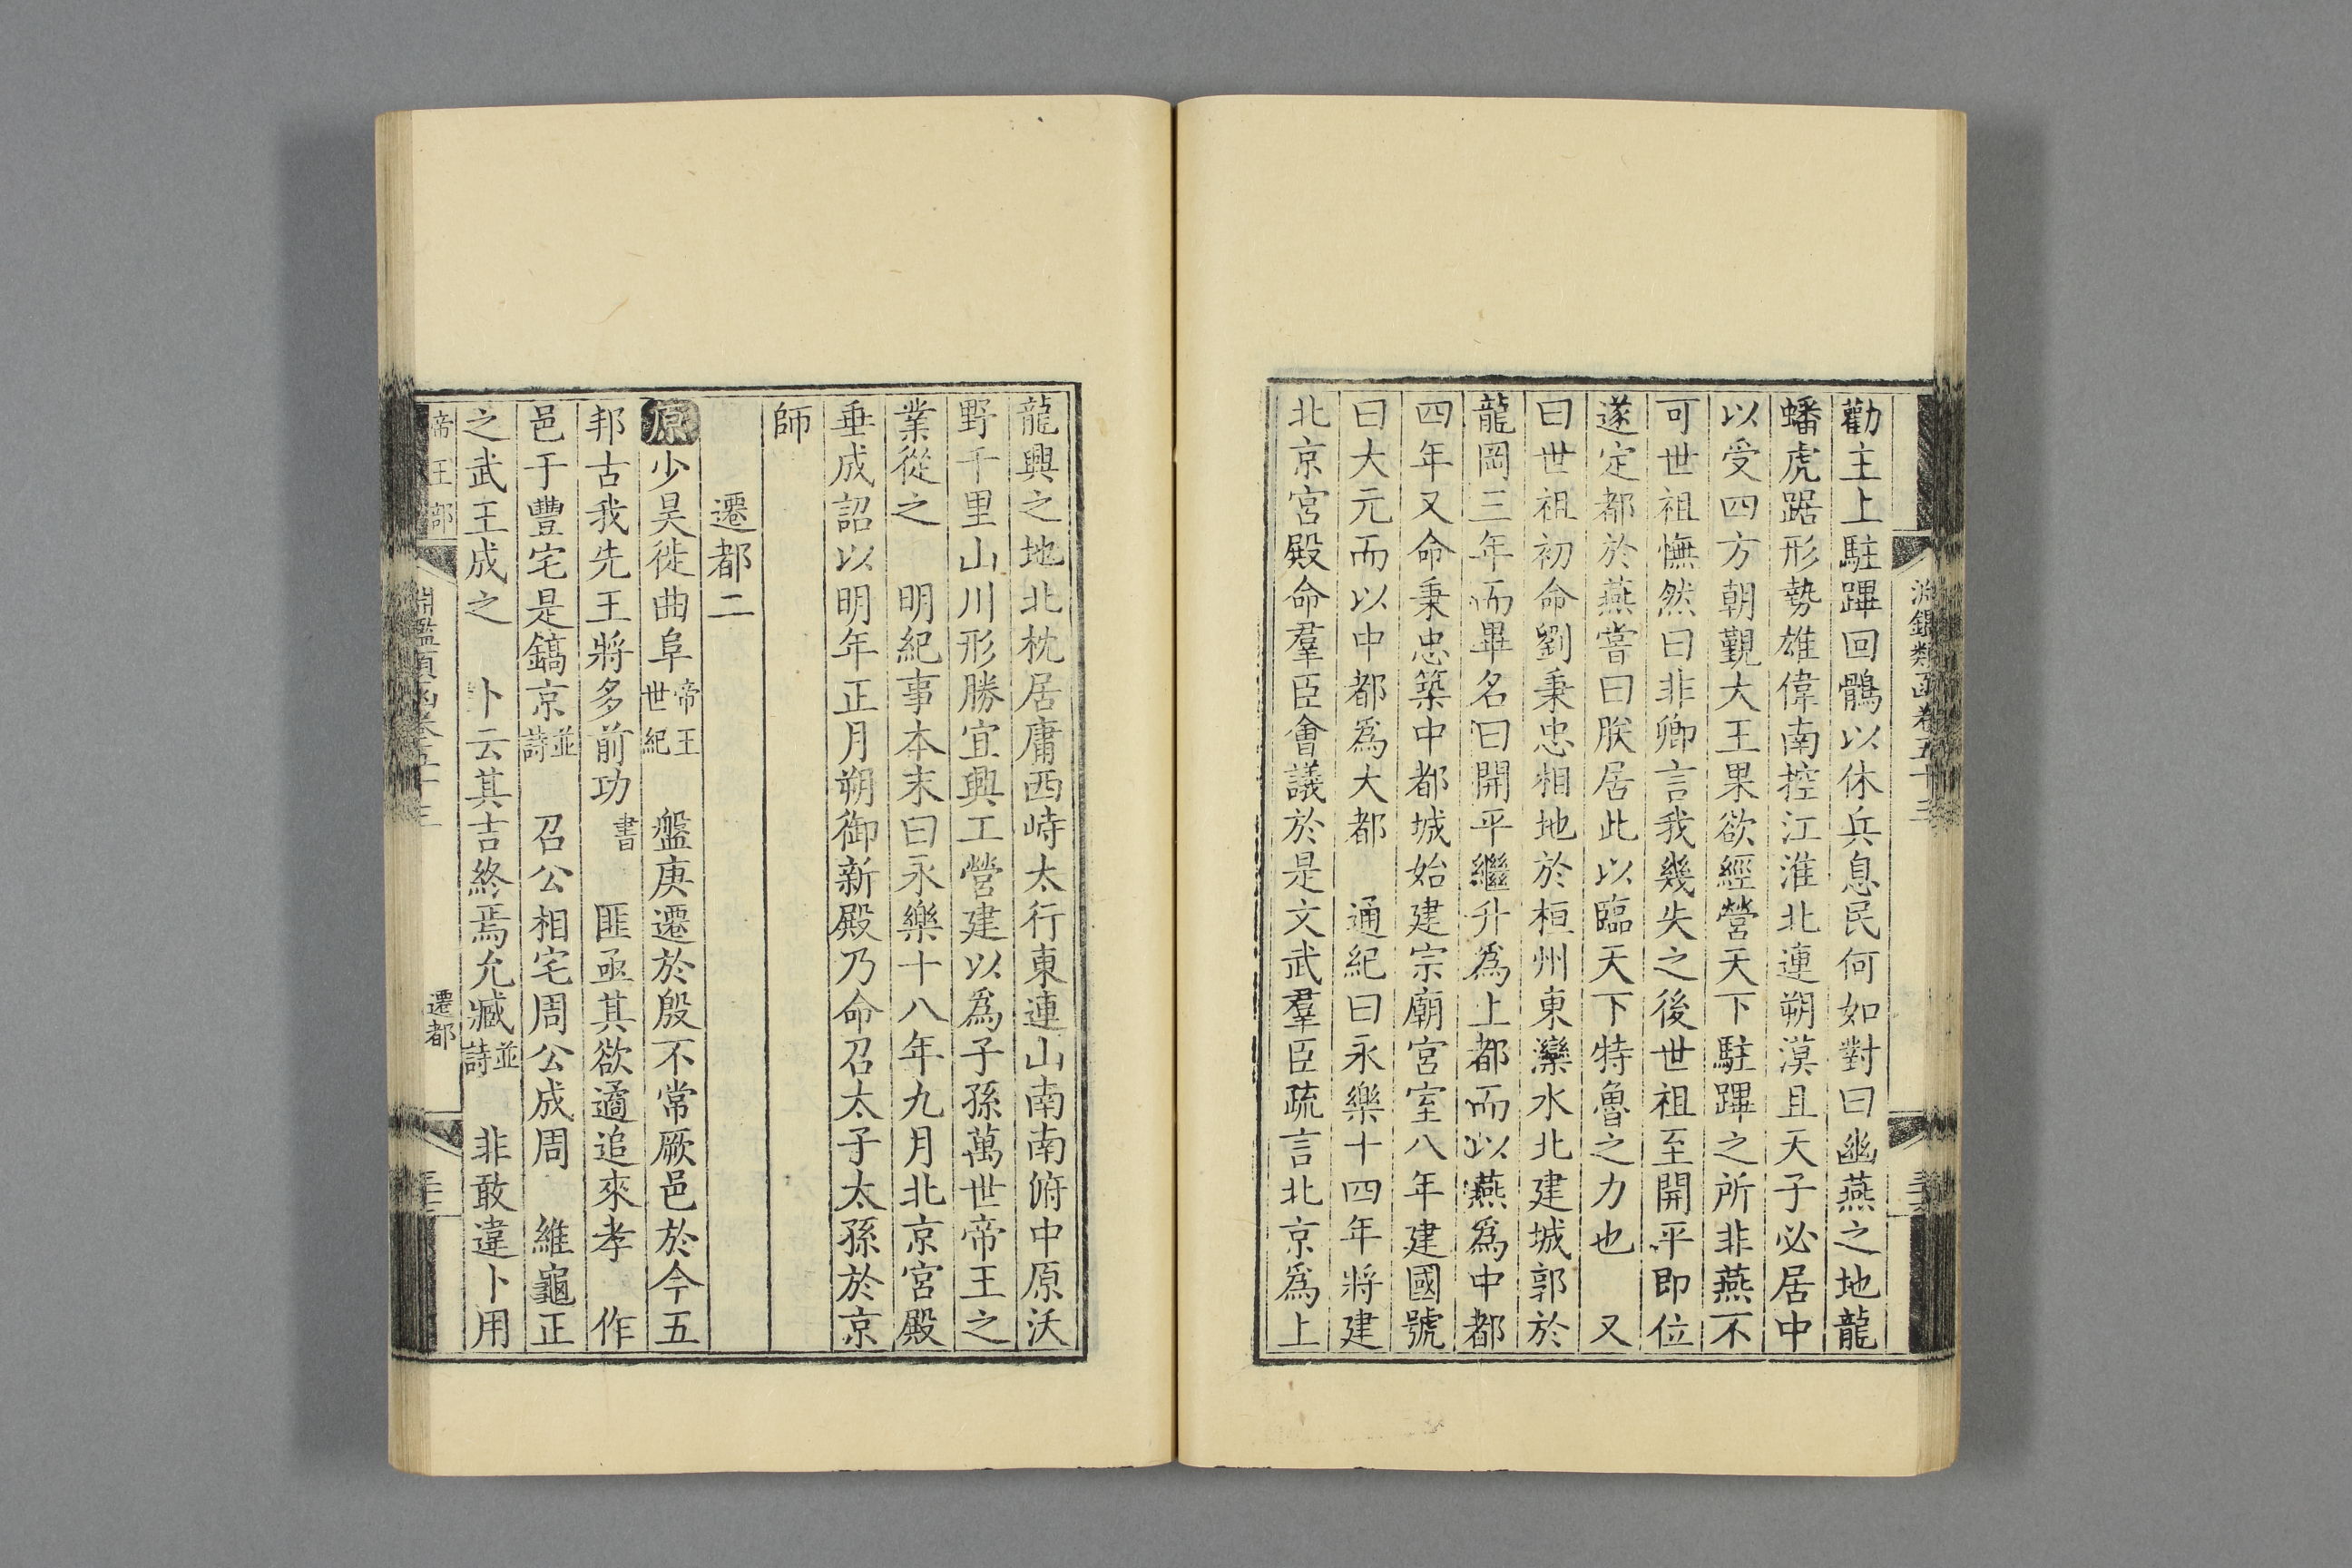 淵鑑類函卷五十三
勸主上駐蹕回鶻以休兵息民何如對曰幽燕之地龍
蟠虎踞形勢雄偉南控江淮北連朔漠且天子必居中
以受四方朝覲大王果欲經營天下駐蹕之所非燕不
可世祖憮然曰非卿言我幾失之後世祖至開平即位
遂定都於燕嘗曰朕居此以臨天下特魯之力也 又
曰世祖初命劉秉忠相地於桓州東灤水北建城郭於
龍岡三年而畢名曰開平繼升爲上都而以燕爲中都
四年又命秉忠築中都城始建宗廟宮室八年建國號
曰大元而以中都爲大都 通紀曰永樂十四年將建
北京宮殿命羣臣會議於是文武羣臣疏言北京爲上
龍興之地北枕居庸西峙太行東連山南南俯中原沃
野千里山川形勝宜興工營建以爲子孫萬世帝王之
業從之 明紀事本末曰永樂十八年九月北京宮殿
垂成詔以明年正月朔御新殿乃命召太子太孫於京
師
遷都二
原少昊徙曲阜帝王世紀 盤庚遷於殷不常厥邑於今五
邦古我先王將多前功書 匪亟其欲遹追來孝 作
邑于豐宅是鎬京並詩 召公相宅周公成周 維龜正
之武王成之 卜云其吉終焉允臧並詩 非敢違卜用
帝王部 淵鑑類函卷五十三 遷都